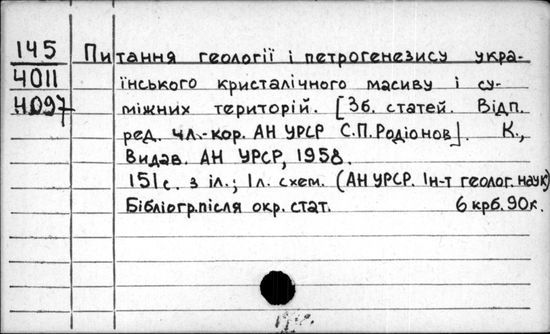 145 Питання геології і петрогенезису укра-
4011 їнського кристалічного масиву і су-
4097 міжних територій. [Зб. статей. Відп.
ред. чл.-кор. АН УРСР С.П.Родіонов]. К.,
Видав. АН УРСР, 1958.
151с. з іл.; 1л. схем. (АН УРСР. Ін-т геолог. наук)
Бібліогр.після окр. стат. 6 крб. 90к.